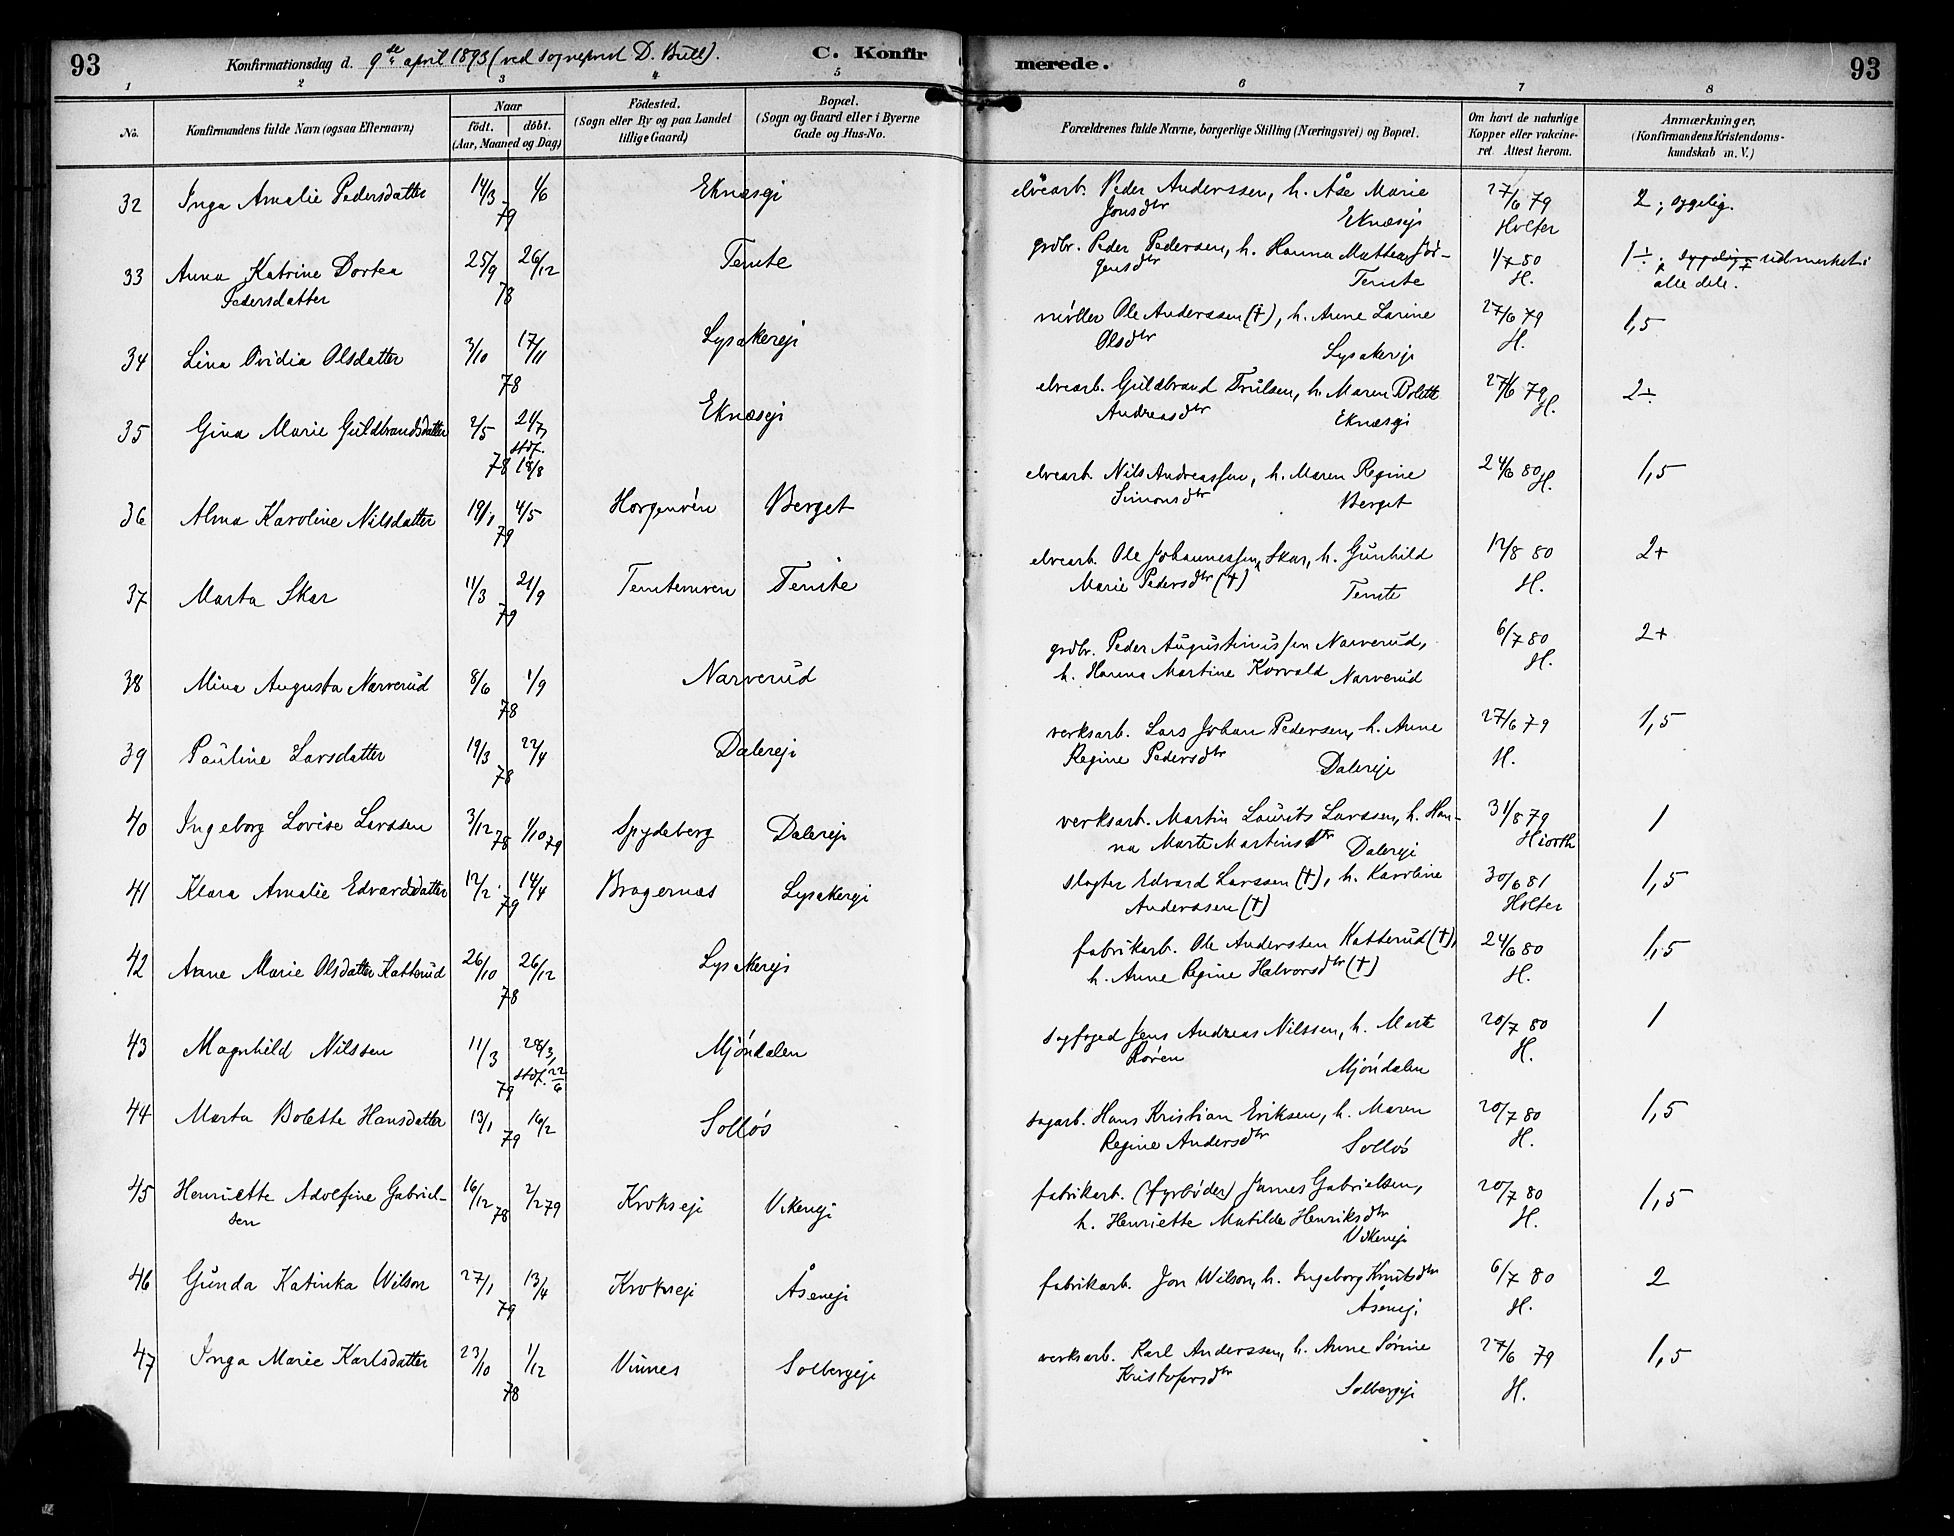 93
Konfirmationsdag d. 9de april 1893 (ved sogneprest D. Bull).
C. Konfirmerede.
93
1 2 3 4 5 6 7 8
No.
Konfirmandens fulde Navn (ogsaa Efternavn)
Naar
födt. döbt.
(Aar, Maaned og Dag)
Födested.
(Sogn eller By og paa Landet
tillige Gaard)
Bopæl.
(Sogn og Gaard eller i Byerne
Gade og Hus-No.
Forældrenes fulde Navne, borgerlige Stilling (Næringsvei) og Bopæl.
Om havt de naturlige
Kopper eller vakcine-
ret. Attest herom.
Anmærkninger,
(Konfirmandens Kristendoms-
kundskab m. V.)
32 Inga Amalie Pedersdatter 14/3 79 1/6 Eknæsej elvearb. Peder Anderssen, h. Åse Marie 27/6 79 2; sygelig.
Jonsdtr Eknæsej Holter
33 Anna Katrine Dortea 25/9 26/12 Temte grdbr. Peder Pedersen, h. Hanna Mathea Jör- 1/7 80 1÷, udmerket i
Pedersdatter 78 gensdtr Temte H. alle dele.
34 Lina Ovidia Olsdatter 3/10 17/11 78 Lysakerej möller Ole Anderssen (†), h. Anne Larine 27/6 79 1,5
Olsdtr Lysakerej H.
35 Gina Marie Guldbrandsdatter 2/5 21/7, Eknæsej elvearb. Guldbrand Trulsen, h. Maren Bolett 27/6 79 2÷
stdf. Andreasdtr Eknæsej H.
78 18/8
36 Alma Karoline Nilsdatter 19/1 4/5 79 Horgenvön Berget elvearb. Nils Andreassen, h. Maren Regine 24/6 80 1,5
Simonsdtr Berget H.
37 Marta Skar 11/3 21/9 79 Temtemoen Temte elvearb. Ole Johannessen Skar, h. Gunhild 12/8 80 2+
Marie Pedersdtr (†) Temte H.
38 Mina Augusta Narverud 8/6 1/9 78 Narverud grdbr. Peder Augustinussen Narverud, 6/7 80 2+
h. Hanna Martine Korvald Narverud H.
39 Pauline Larsdatter 19/3 22/4 78 Dalerej verksarb. Lars Johan Pedersen, h. Anne 27/6 79 1,5
Regine Pedersdtr Dalerej H.
40 Ingeborg Lovise Larssen 3/12 78 1/10 79 Spydeberg Dalerej verksarb. Martin Laurits Larssen, h. Han- 31/8 79 1
na Marte Martinsdtr Dalerej Hiorth
41 Klara Amalie Edvardsdatter 12/2 14/4 79 Bragernæs Lysakerej slagter Edvard Larssen (†), h. Karoline 30/6 81 1,5
Anderssen (†) Holter
42 Anne Marie Olsdatter Katterud 26/10 26/12 78 Lysakerej fabrikarb. Ole Anderssen Katterud (†), 24/6 80 1,5
h. Anne Regine Halvorsdtr (†) H.
43 Magnhild Nilssen 11/3 28/3, Mjöndalen sagfoged Jens Andreas Nilssen, h. Marte 20/7 80 1
79 stdf. 22/6 Rören Mjöndalen H.
44 Marta Bolette Hansdatter 13/1 16/2 79 Sollös sagarb. Hans Kristian Eriksen, h. Maren 20/7 80 1,5
Regine Andersdtr Sollös H.
45 Henriette Adolfine Gabriel- 16/12 78 2/2 79 Krokseje Vikenej fabrikarb. (fyrböder) James Gabrielsen, 20/7 80 1,5
sen h. Henriette Matilde Henriksdtr H.
Vikenej
46 Gunda Katinka Wilson 27/1 13/4 79 Kroksej Åsenej fabrikarb. Jon Wilson, h. Ingeborg Knutsdtr 6/7 80 2
Åsenej H.
47 Inga Marie Karlsdatter 23/10 1/12 78 Vinnes Solbergeje verksarb. Karl Anderssen, h. Anne Sörine 27/6 79 1,5
Kristofersdtr Solbergeje H.